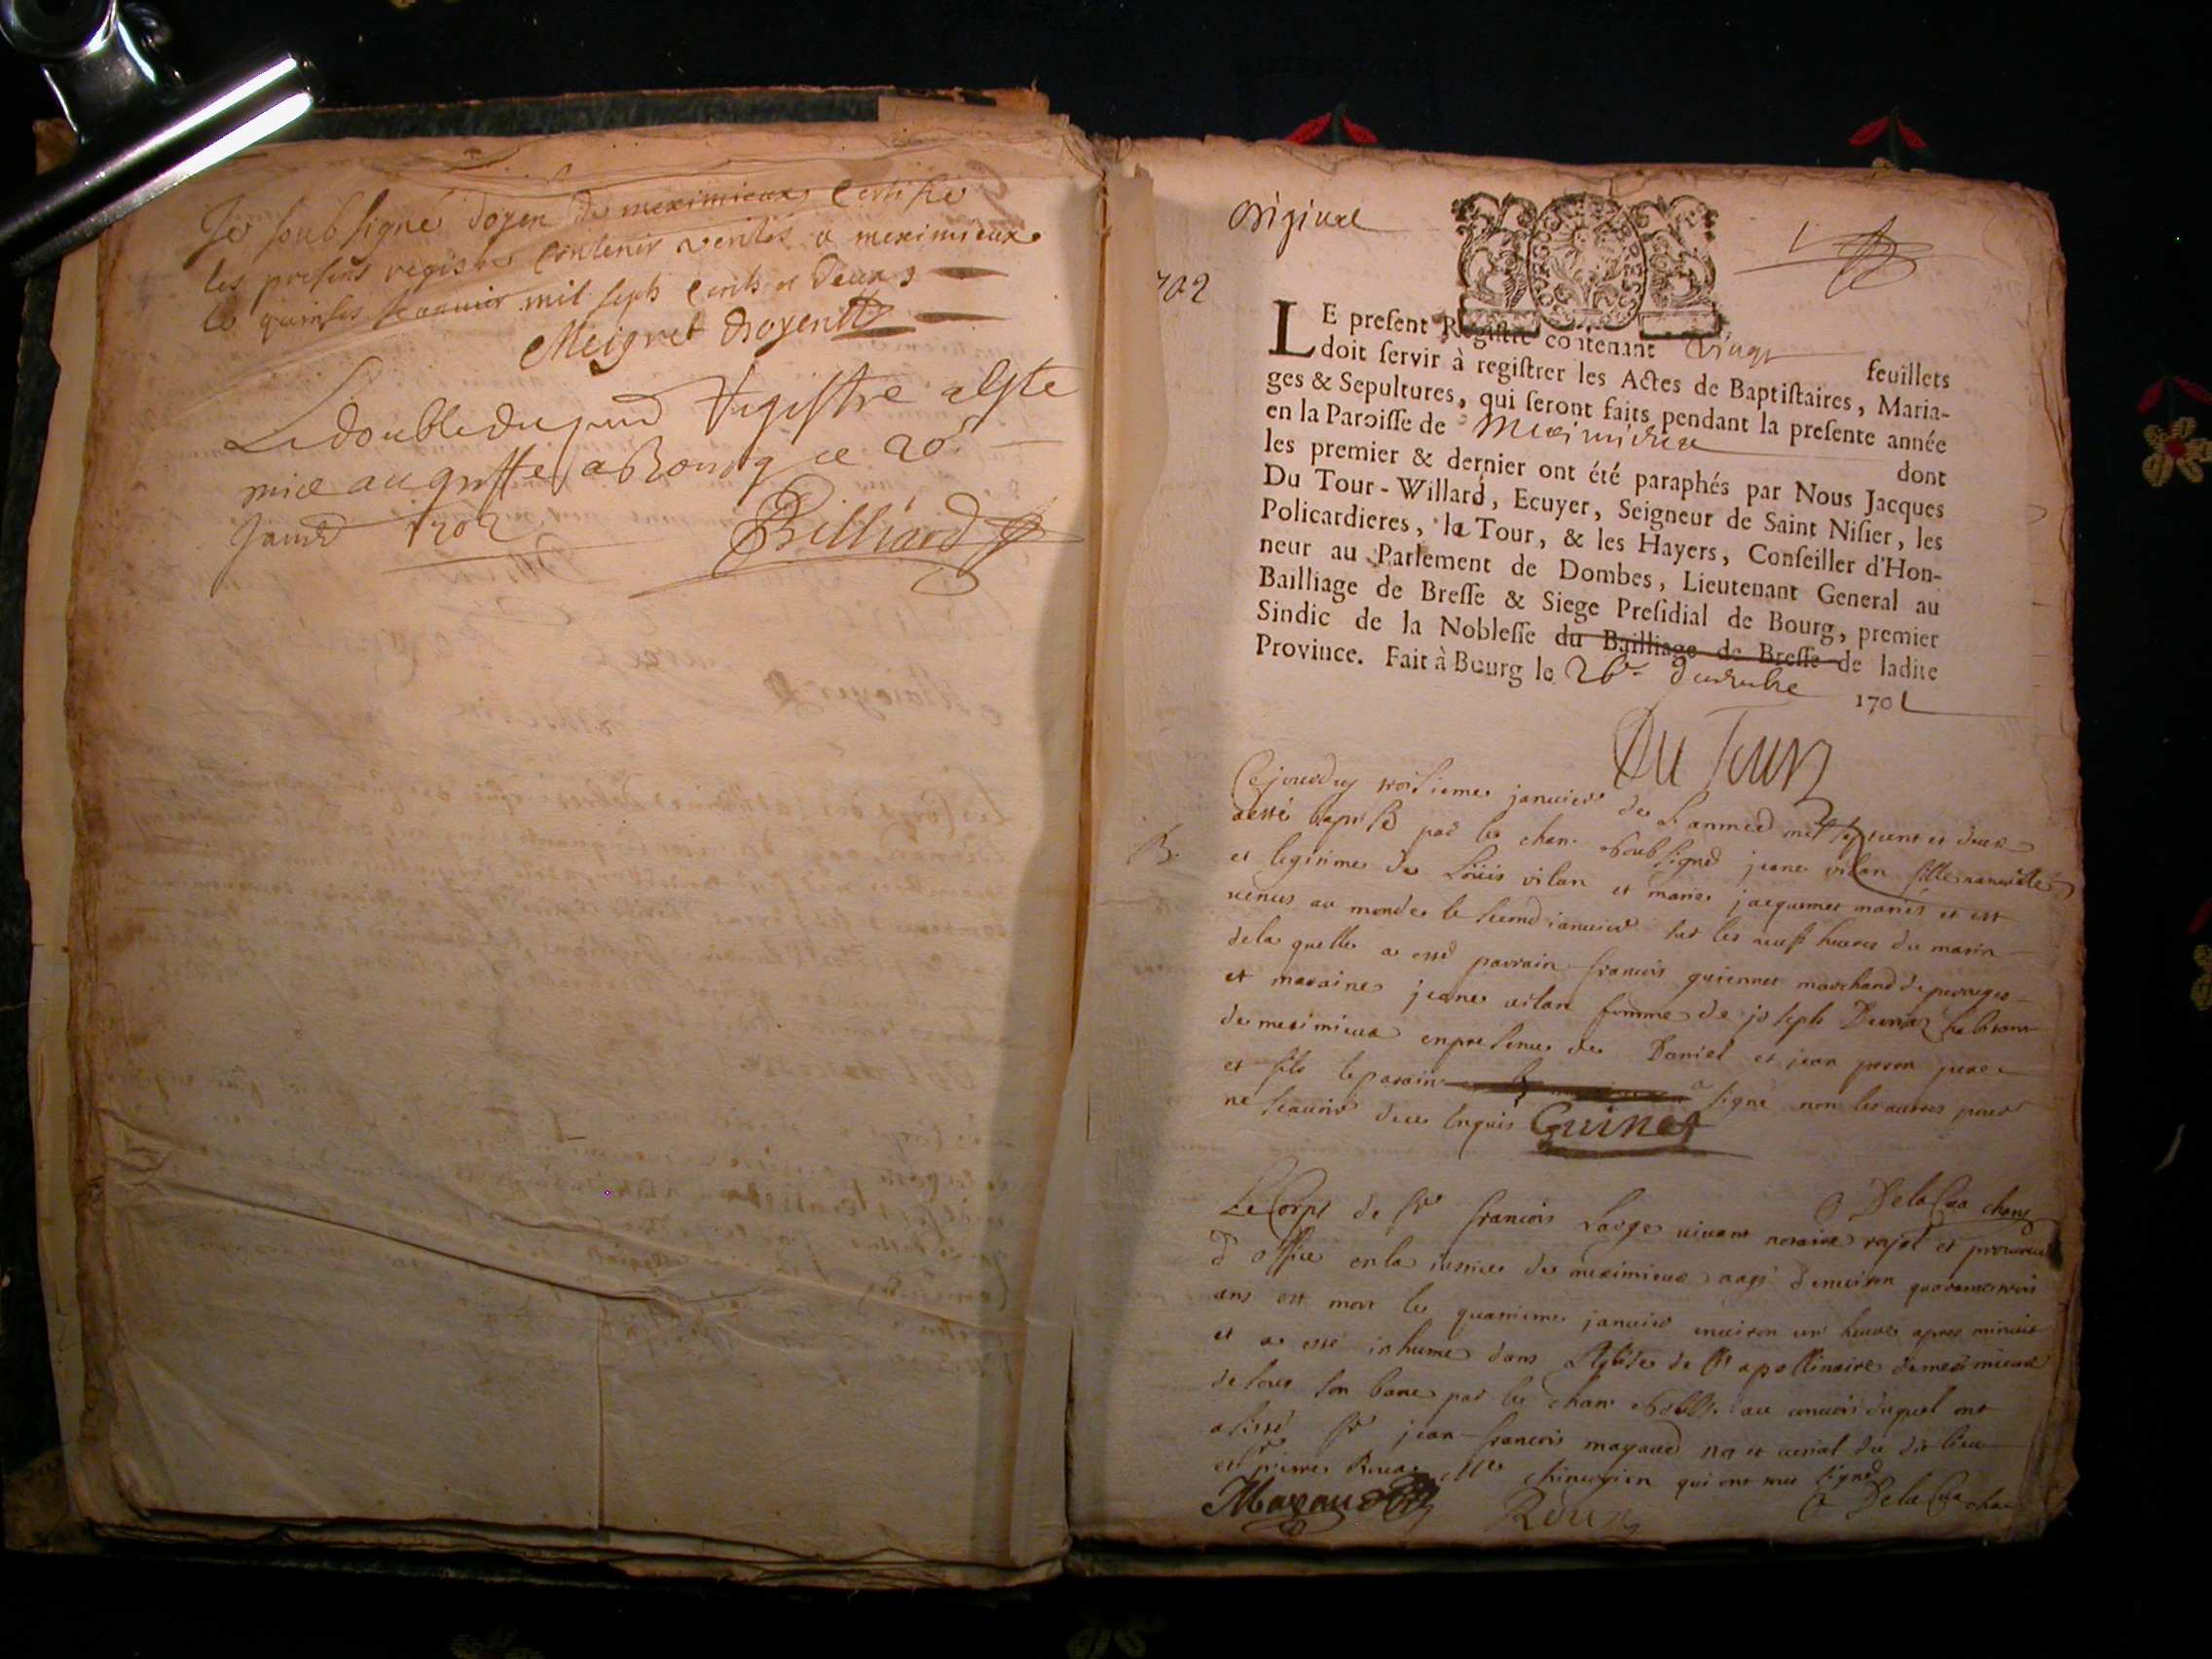 Je soub signé doyen de meximieux Certifie
les presens registre Contenir verité a meximieux
le quinse Jeanuier mil sept Cents et deux
Meigret doyen
Le double du pnt Registre a este
mis au greffe a Bourg ce 20e
Janvr 1702
Billiard
Original
1
702
LE present Registre contenant vingt feuillets
doit servir à registrer les Actes de Baptistaires, Maria-
ges & Sepultures, qui seront faits pendant la presente année
en la Paroisse de Meximieux dont
les premier & dernier ont été paraphés par Nous Jacques
Du Tour-Willard, Ecuyer, Seigneur de Saint Nisier, les
Policardieres, la Tour, & les Hayers, Conseiller d'Hon-
neur au Parlement de Dombes, Lieutenant General au
Bailliage de Bresse & Siege Presidial de Bourg, premier
Sindic de la Noblesse du Bailliage de Bresse de ladite
Province. Fait à Bourg le 26e decembre 1701
Du Tour
Cejourduy troisieme januier de Lannee mil sept cent et deux
B.
a esté baptisé par le chan. soubsigné jeane vilan fille naturelle
et legitime de Loüis vilan et marie jaquemet mariés et est
venue au monde le second januier sur les neuf heures du matin
de la quelle a esté parrain francois guiennet marchand de perouges
et maraine jeane vilan femme de joseph habitant
de meximieux en presence de Daniel et jean peron pere
et fils le parain a signé non les autres pour
ne scauoir de ce Enquis Guinet
DelaCra chane
Le Corps de Sr francois Large viuant notaire rojal et procureur
d'office en la justice de meximieux aagé d'enuiron quarante trois
ans est mort le quatrieme januier enuiron un heure apres minuit
et a esté inhumé dans L'Eglise de St apollinaire de meximieux
desous son banc par le chan soubs. au conuoi duquel ont
assisté Sr jean francois mayaud nore et du dit lieu
et pierre Roux Mre chirurgien qui ont tous signé
Mayaud Roux DelaCra chan